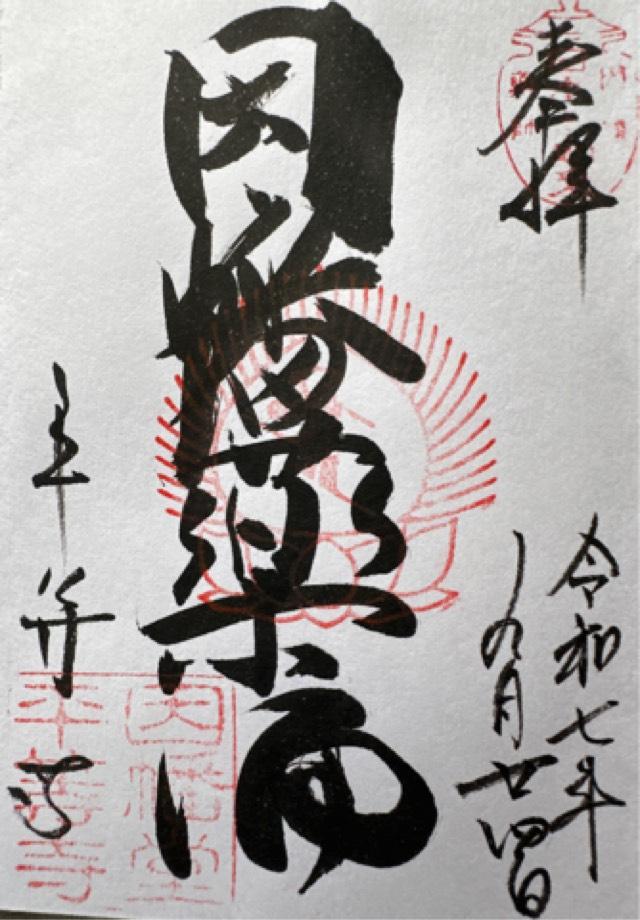 奉拝
令和七年
九月廿四日
因幡薬師
平等寺
因幡堂
平等寺